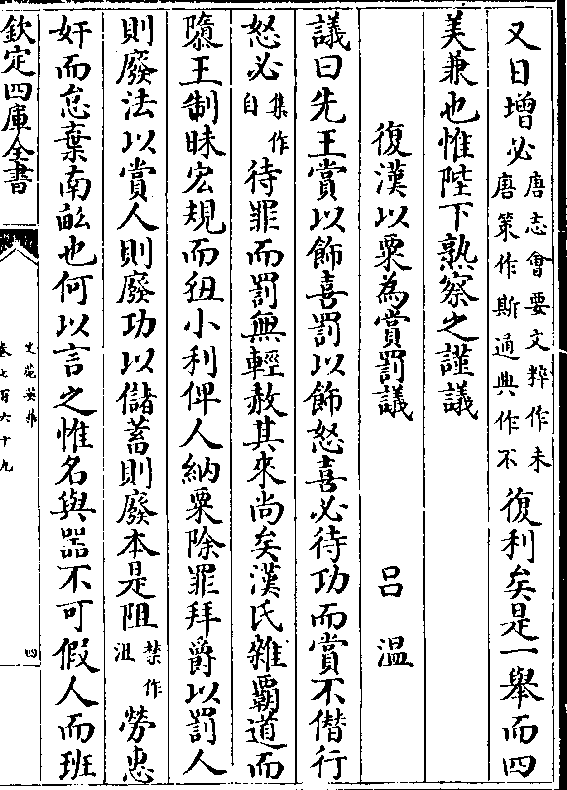 又日增必唐志會要文粹作未唐策作斯通典作不復利矣是一舉而四
美兼也惟陛下熟察之謹議
復漢以粟為賞罰議
呂溫
議曰先王賞以飾喜罰以飾怒喜必待功而賞不僭行
怒必集作自待罪而罰無輕赦其來尚矣漢氏雜霸道而
隳王制昧宏規而狃小利俾人納粟除罪拜爵以罰人
則廢法以賞人則廢功以儲蓄則廢本是阻集作沮勞惠
奸而怠棄南畝也何以言之惟名與器不可假人而班
欽定四庫全書
文苑英華
卷七百六十九
四